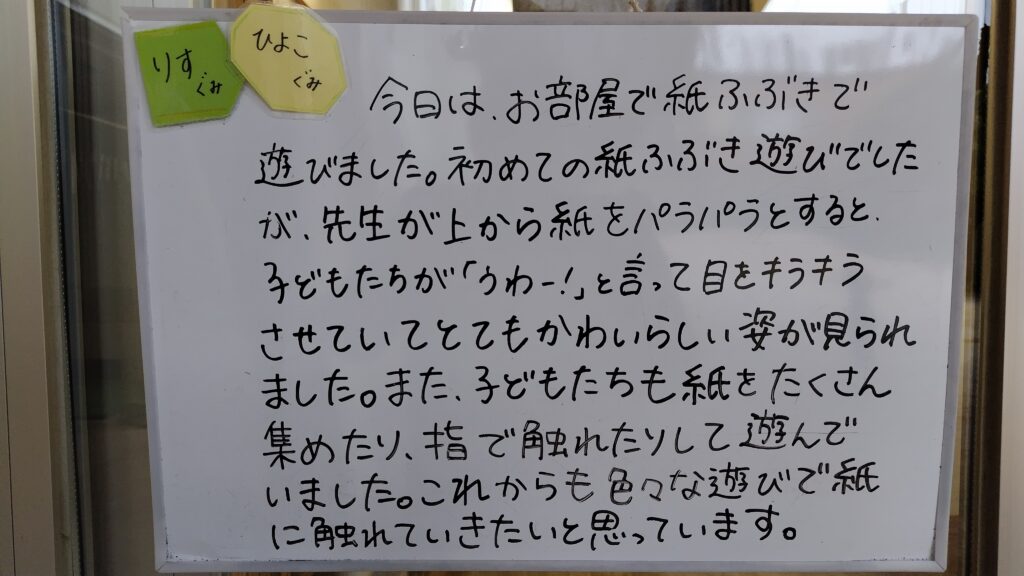 りす
ぐみ
ひよこ
ぐみ
今日は、お部屋で紙ふぶきで
遊びました。初めての紙ふぶき遊びでした
が、先生が上から紙をパラパラとすると、
子どもたちが「うわー!」と言って目をキラキラ
させていてとてもかわいらしい姿が見られ
ました。また、子どもたちも紙をたくさん
集めたり、指で触れたりして遊んで
いました。これからも色々な遊びで紙
に触れていきたいと思っています。